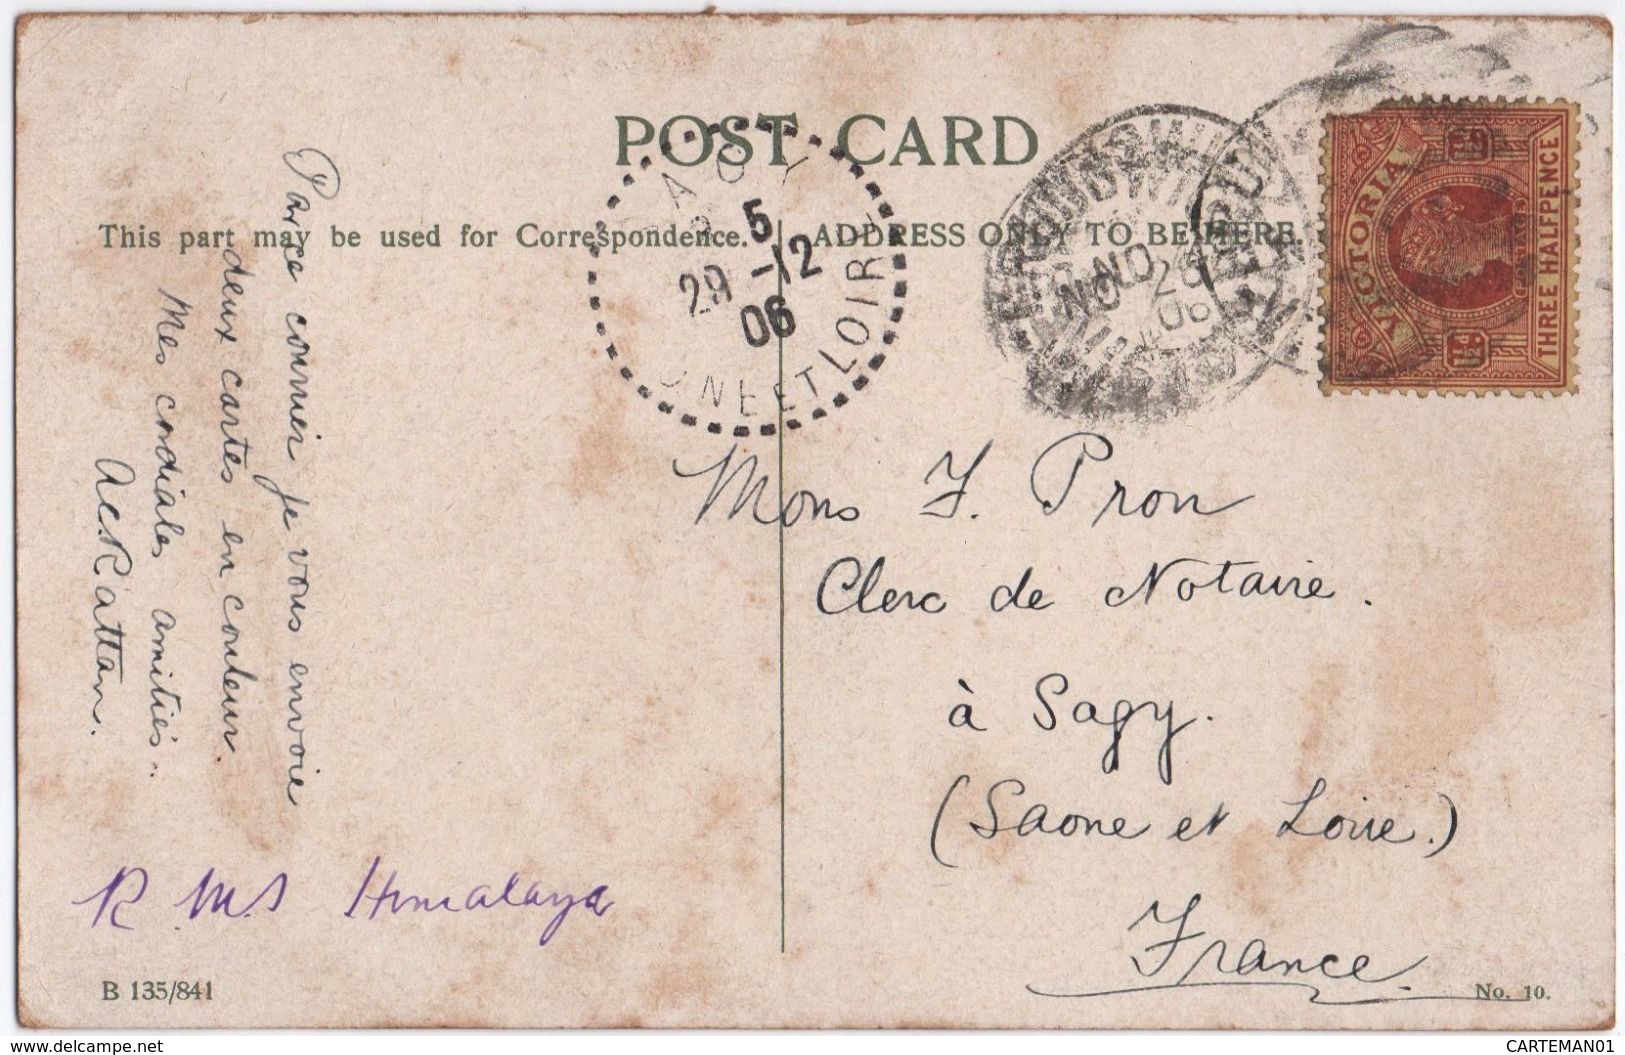 POST CARD
This part may be used for Correspondence.
ADDRESS ONLY TO BE HERE.
Par ce courrier je vous envoie
deux cartes en couleur.
Mes cordiales amitiés
A.C. Rattan.
R.M.S Himalaya
B 135/841
5
29-12
06
ET LOIRE
BRUNSWICK
NO 26
06
VICTORIA
THREE HALFPENCE
POSTAGE
Mons F. Pron
Clerc de Notaire.
à Sagy.
(Saone et Loire.)
France.
No. 10.
delcampe.net
CARTEMAN01